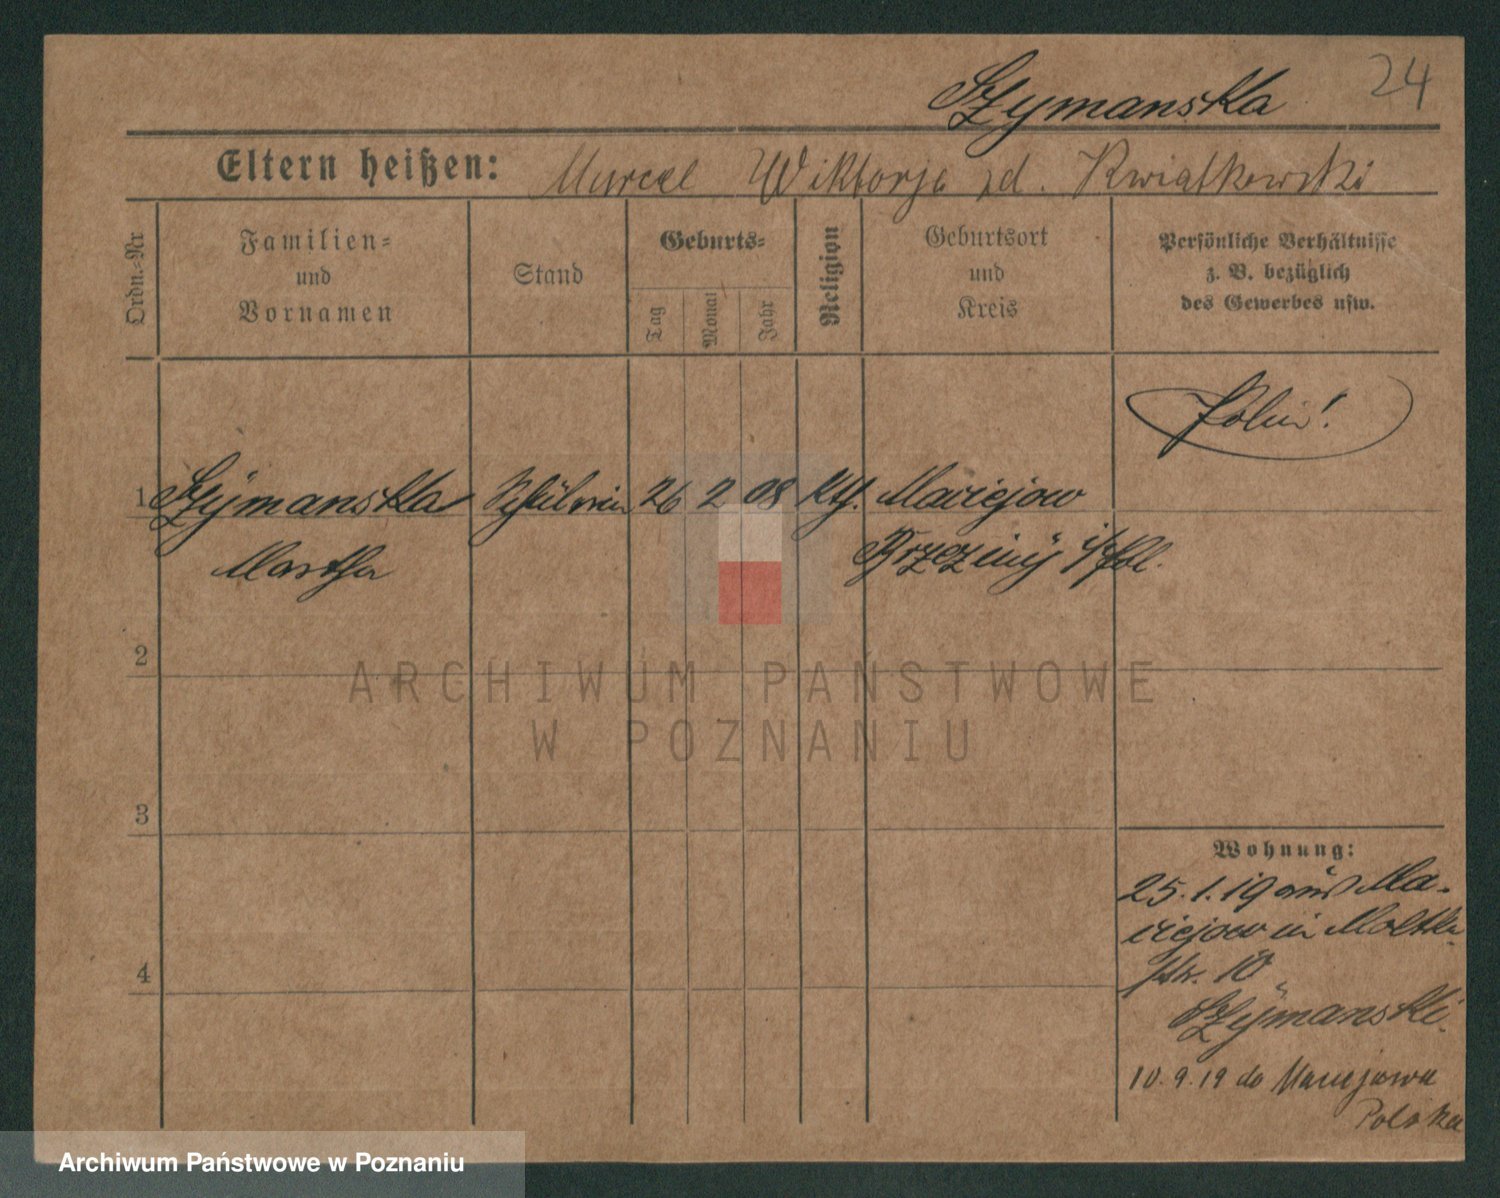 24
Szymanska
Eltern heißen: Marcel Wiktorja zd. Kwiatkowski
Ordn.-Nr.
Familien-
und
Vornamen
Stand
Geburts-
Tag
Monat
Jahr
Religion
Geburtsort
und
Kreis
Persönliche Verhältnisse
z. B. bezüglich
des Gewerbes usw.
Polin!
1 Szÿmanska Schülerin 26 2 08 kth. Maciejow
Martha Brzezinÿ i/Pol.
2
ARCHIWUM PAŃSTWOWE
W POZNANIU
3
Wohnung:
25.1.19 aus Ma-
ciejow in Moltke
str. 10
Szÿmanski.
4
10.9.19 do Maciejowa
Polska
Archiwum Państwowe w Poznaniu